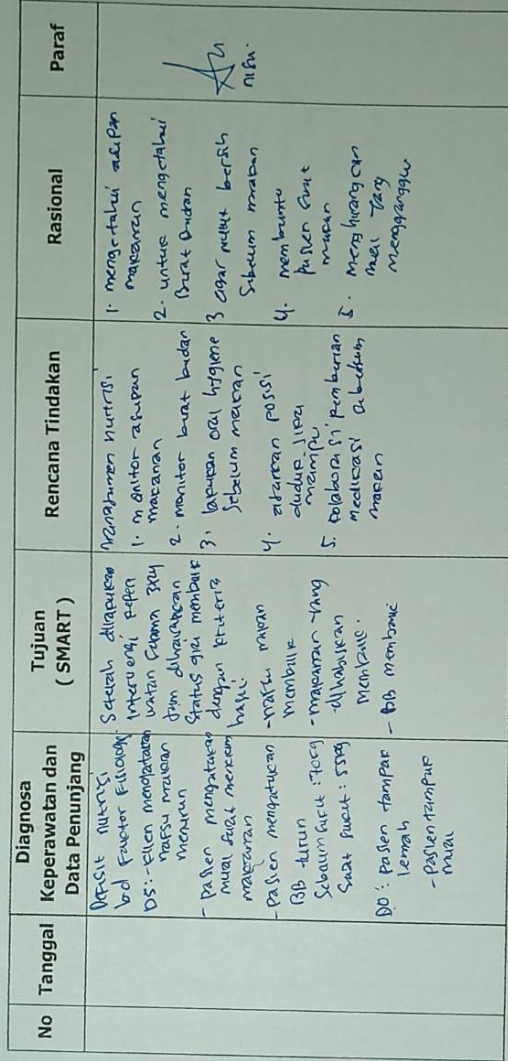 No
Tanggal
Diagnosa
Keperawatan dan
Data Penunjang
Tujuan
( SMART )
Rencana Tindakan
Rasional
Paraf
Defisit nutrisi
bd Factor Fisiologi
DS: - klien mengatakan
nafsu makan
menurun
- pasien mengatakan
mual saat mencium
makanan
- Pasien mengatakan
BB turun
Sebelum sakit : 70kg
Saat sakit : 55kg
DO : pasien tampak
lemah
- pasien tampak
mual
Setelah dilakukan
intervensi kepera
watan selama 3x24
jam diharapkan
Status gizi membaik
dengan kriteria
hasil:
- nafsu makan
membaik
- makanan yang
dihabiskan
membaik.
- BB membaik
Manajemen nutrisi
1. monitor asupan
makanan
2. monitor berat badan
3. lakukan oral hygiene
sebelum makan
4. ajarkan posisi
duduk, jika
mampu
5. kolaborasi pemberian
medikasi sebelum
makan
1. mengetahui asupan
makanan
2. untuk mengetahui
Berat Badan
3 agar mulut bersih
Sebelum makan
4. membantu
pasien saat
makan
5. menghilangkan
mual yang
mengganggu